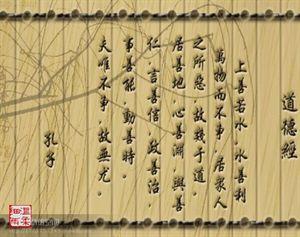 道德經
上善若水，水善利
萬物而不爭，居眾人
之所惡，故幾于道
居善地，心善淵，與善
仁，言善信，政善治，
事善能，動善時。
夫唯不爭，故無尤。
孔子